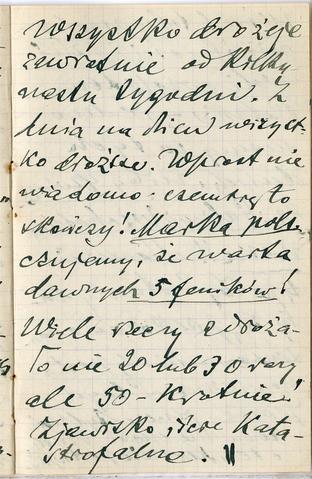 Wszystko drożeje
zawrotnie od kilku
nastu tygodni. Z
dnia na dzień wszyst-
ko droższe. Wprost nie
wiadomo czem się to
skończy! Marka pols-
czujemy, że warta
dawnych 5 feników!
Wiele rzeczy zdroża-
ło nie 20 lub 30 razy
ale 50-krotnie!
Zjawisko iście kata-
strofalne.